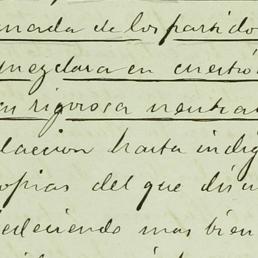 nada de los partido
mezclara en cuestió
su rigurosa neutra
lacion hasta indig
opias del que discu
edeciendo mas bien